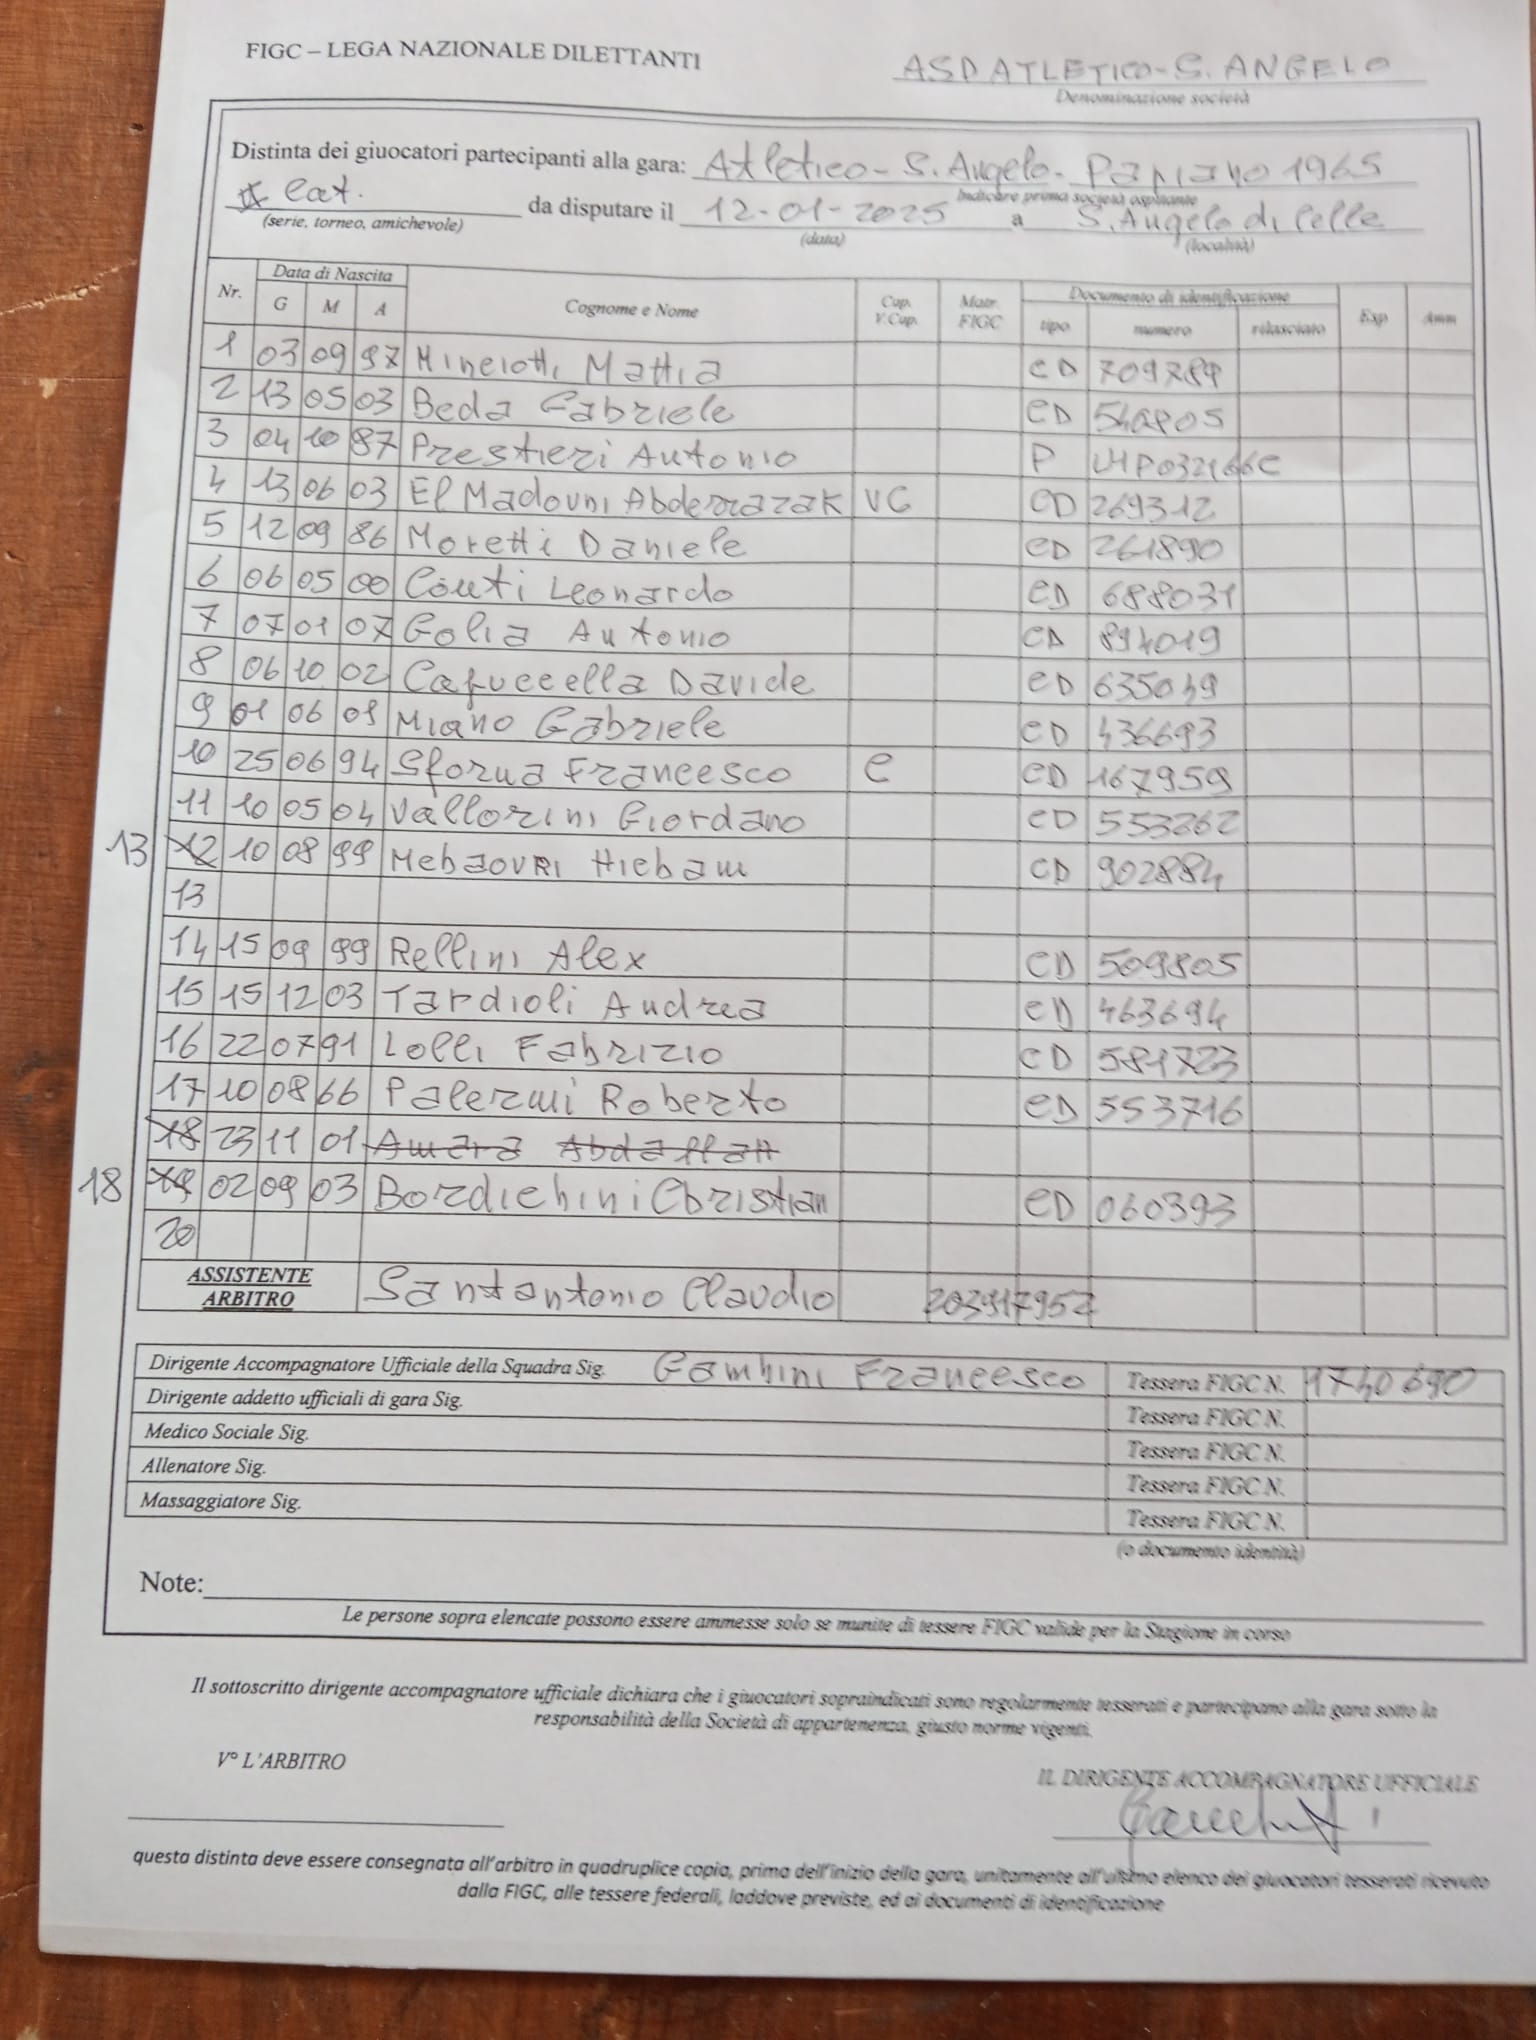 FIGC – LEGA NAZIONALE DILETTANTI
ASD ATLETICO - S. ANGELO
Denominazione società
Distinta dei giuocatori partecipanti alla gara: Atletico - S. Angelo - Papiano 1965
Indicare prima società ospitante
cat. da disputare il 12-01-2025 a S. Angelo di Celle
(serie, torneo, amichevole) (data) (località)
Nr. Data di Nascita Cognome e Nome Cap. V.Cap. Matr. FIGC Documento di identificazione Esp Amm
G M A tipo numero rilasciato
1 03 09 97 Minciotti Mattia CD 709789
2 13 05 03 Beda Gabriele CD 540805
3 04 10 87 Prestieri Antonio P
4 13 06 03 El Madouni Abderrazak VC CD 269312
5 12 09 86 Moretti Daniele CD 261890
6 06 05 00 Conti Leonardo CD 688031
7 07 01 07 Golia Antonio CD 894019
8 06 10 02 Capuccella Davide CD 635049
9 01 06 01 Miano Gabriele CD 436693
10 25 06 94 Sforna Francesco C CD 167959
11 10 05 04 Vallorini Giordano CD 553262
13 12 10 08 99 Mebaouri Hicham CD 902884
13
14 15 09 99 Rellini Alex CD 509805
15 15 12 03 Tardioli Andrea CD 463694
16 22 07 91 Lolli Fabrizio CD 581723
17 10 08 66 Palermi Roberto CD 553716
18 23 11 01 Amara Abdaffatt
18 19 02 09 03 Bordichini Christian CD 060393
20
ASSISTENTE ARBITRO Santantonio Claudio 203917952
Dirigente Accompagnatore Ufficiale della Squadra Sig. Gambini Francesco Tessera FIGC N. 1740690
Dirigente addetto ufficiali di gara Sig. Tessera FIGC N.
Medico Sociale Sig. Tessera FIGC N.
Allenatore Sig. Tessera FIGC N.
Massaggiatore Sig. Tessera FIGC N.
(o documento identità)
Note:
Le persone sopra elencate possono essere ammesse solo se munite di tessere FIGC valide per la Stagione in corso
Il sottoscritto dirigente accompagnatore ufficiale dichiara che i giuocatori sopraindicati sono regolarmente tesserati e partecipano alla gara sotto la
responsabilità della Società di appartenenza, giusto norme vigenti.
V° L'ARBITRO
IL DIRIGENTE ACCOMPAGNATORE UFFICIALE
questa distinta deve essere consegnata all'arbitro in quadruplice copia, prima dell'inizio della gara, unitamente all'ultimo elenco dei giuocatori tesserati ricevuto
dalla FIGC, alle tessere federali, laddove previste, ed ai documenti di identificazione